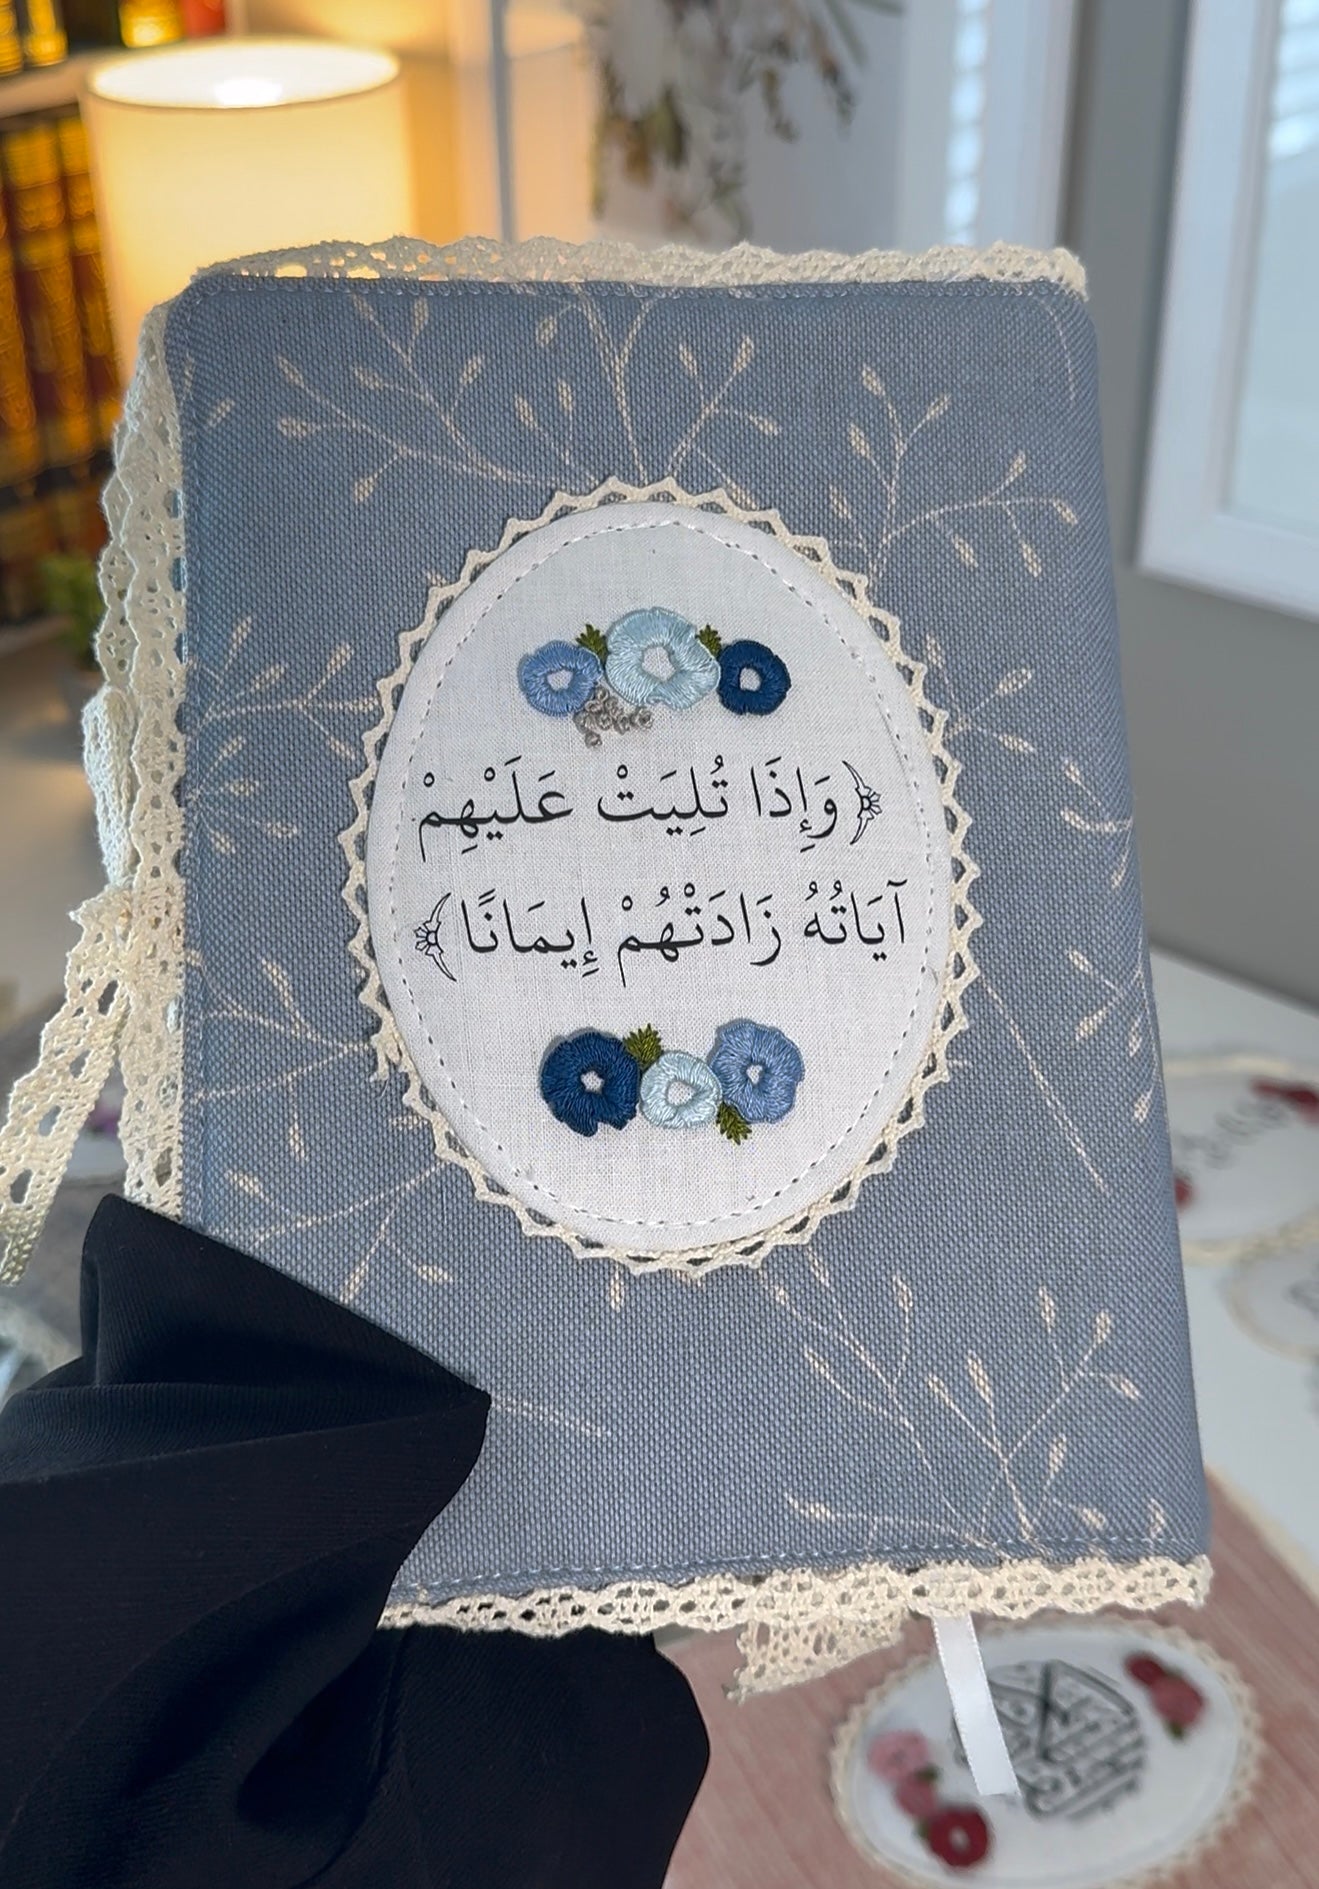 ﴿وَإِذَا تُلِيَتْ عَلَيْهِمْ
آيَاتُهُ زَادَتْهُمْ إِيمَانًا﴾